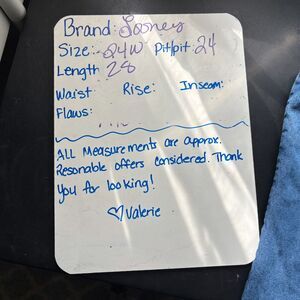 Brand: Looney
Size: 24W Pit/pit: 24
Length 28
Waist: Rise: Inseam:
Flaws:
ALL Measurements are approx.
Resonable offers considered. Thank
you for looking!
♡Valerie